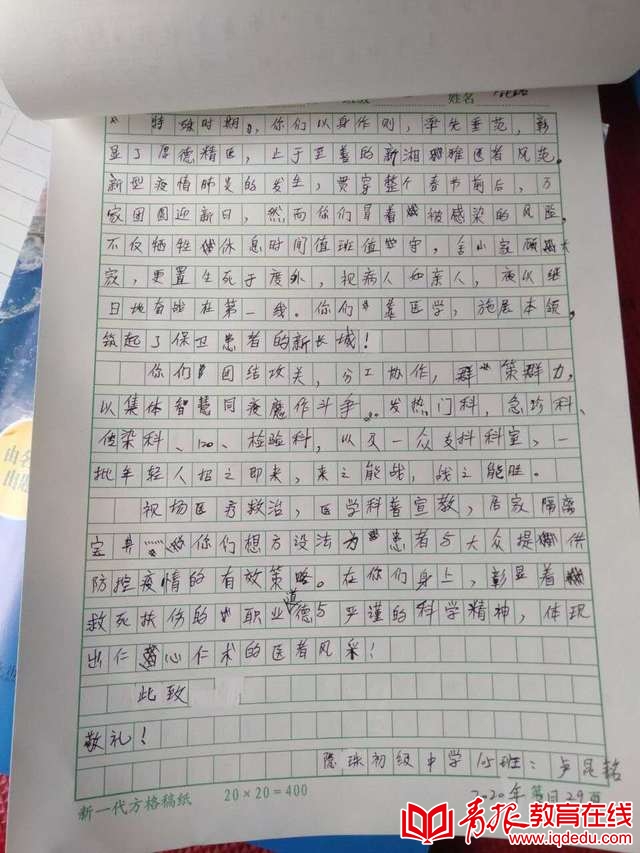 姓名
特殊时期,你们以身作则,率先垂范,彰
显了厚德精医,止于至善的新湘雅医者风范。
新型疫情肺炎的发生,贯穿整个春节前后,万
家团圆迎新日,然而你们冒着被感染的风险,
不仅牺牲休息时间值班值守,舍小家顾大
家,更置生死于度外,视病人如亲人,夜以继
日地奋战在第一线。你们 医学,施展本领,
筑起了保卫患者的新长城!
你们团结攻关,分工协作,群策群力,
以集体智慧同疫魔作斗争。发热门科、急诊科、
传染科、120、检验科,以及一众支持科室,一
批年轻人招之即来,来之能战,战之能胜。
现场医疗救治,医学科普宣教,居家隔离
你们想方设法为患者与大众提供
防控疫情的有效策略。在你们身上,彰显着
救死扶伤的职业道德与严谨的科学精神,体现
出仁心仁术的医者风采!
此致
敬礼!
隐珠初级中学 班:卢昆铭
新一代方格稿纸 20×20=400
2020年 29
青报教育在线
www.iqdedu.com